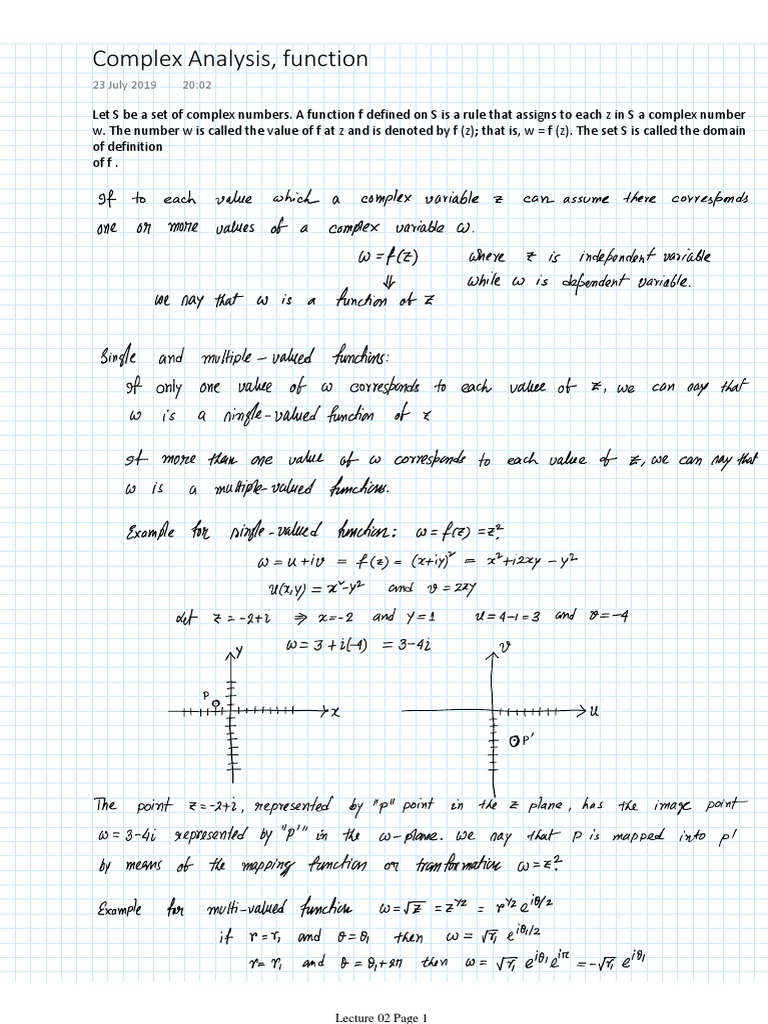 Complex Analysis, function
23 July 2019 20:02
Let S be a set of complex numbers. A function f defined on S is a rule that assigns to each z in S a complex number
w. The number w is called the value of f at z and is denoted by f (z); that is, w = f (z). The set S is called the domain
of definition
of f .
If to each value which a complex variable z can assume there corresponds
one or more values of a complex variable ω.
ω = f(z) where z is independent variable
⇓ while ω is dependent variable.
we say that ω is a function of z
Single and multiple-valued functions:
If only one value of ω corresponds to each value of z, we can say that
ω is a single-valued function of z
If more than one value of ω corresponds to each value of z, we can say that
ω is a multiple-valued function.
Example for single-valued function: ω = f(z) = z².
ω = u + iv = f(z) = (x+iy)² = x² + i2xy - y²
u(x,y) = x² - y² and v = 2xy
Let z = -2+i ⇒ x = -2 and y = 1 u = 4-1 = 3 and v = -4
ω = 3 + i(-4) = 3-4i
y v
P
x u
P'
The point z = -2+i, represented by "p" point in the z plane, has the image point
ω = 3-4i represented by "p'" in the ω-plane. we say that P is mapped into p'
by means of the mapping function or transformation ω = z².
Example for multi-valued function ω = √z = z^{1/2} = r^{1/2} e^{iθ/2}
if r = r₁ and θ = θ₁ then ω = √r₁ e^{iθ₁/2}
r = r₁ and θ = θ₁ + 2π then ω = √r₁ e^{iθ₁} e^{iπ} = -√r₁ e^{iθ₁}
Lecture 02 Page 1